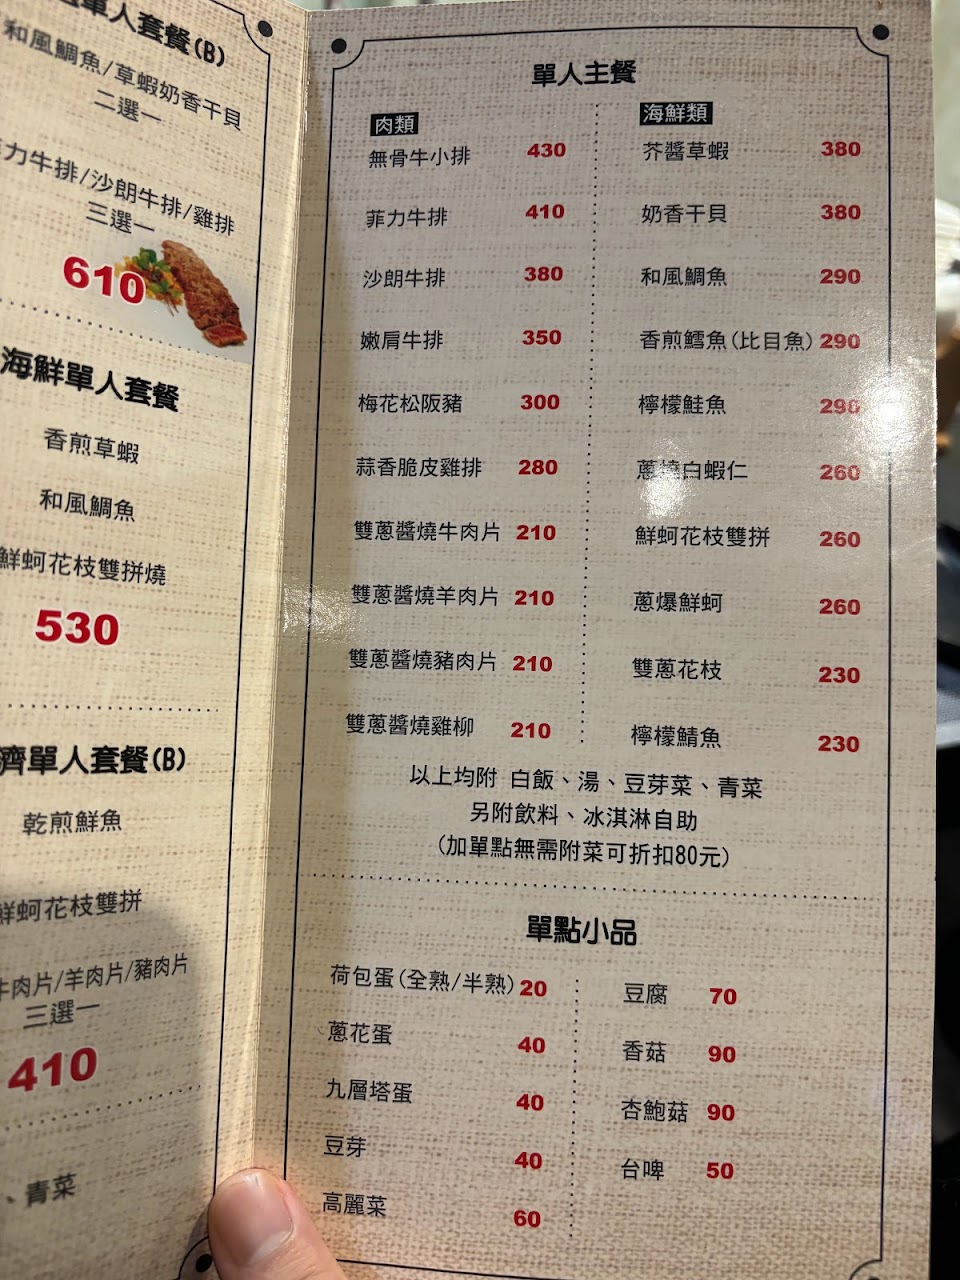 單人套餐(B)
和風鯛魚/草蝦奶香干貝
二選一
力牛排/沙朗牛排/雞排
三選一
610
海鮮單人套餐
香煎草蝦
和風鯛魚
鮮蚵花枝雙拼燒
530
濟單人套餐(B)
乾煎鮮魚
鮮蚵花枝雙拼
牛肉片/羊肉片/豬肉片
三選一
410
、青菜
單人主餐
肉類
無骨牛小排 430
菲力牛排 410
沙朗牛排 380
嫩肩牛排 350
梅花松阪豬 300
蒜香脆皮雞排 280
雙蔥醬燒牛肉片 210
雙蔥醬燒羊肉片 210
雙蔥醬燒豬肉片 210
雙蔥醬燒雞柳 210
海鮮類
芥醬草蝦 380
奶香干貝 380
和風鯛魚 290
香煎鱈魚(比目魚) 290
檸檬鮭魚 290
蔥燒白蝦仁 260
鮮蚵花枝雙拼 260
蔥爆鮮蚵 260
雙蔥花枝 230
檸檬鯖魚 230
以上均附 白飯、湯、豆芽菜、青菜
另附飲料、冰淇淋自助
(加單點無需附菜可折扣80元)
單點小品
荷包蛋(全熟/半熟) 20
蔥花蛋 40
九層塔蛋 40
豆芽 40
高麗菜 60
豆腐 70
香菇 90
杏鮑菇 90
台啤 50